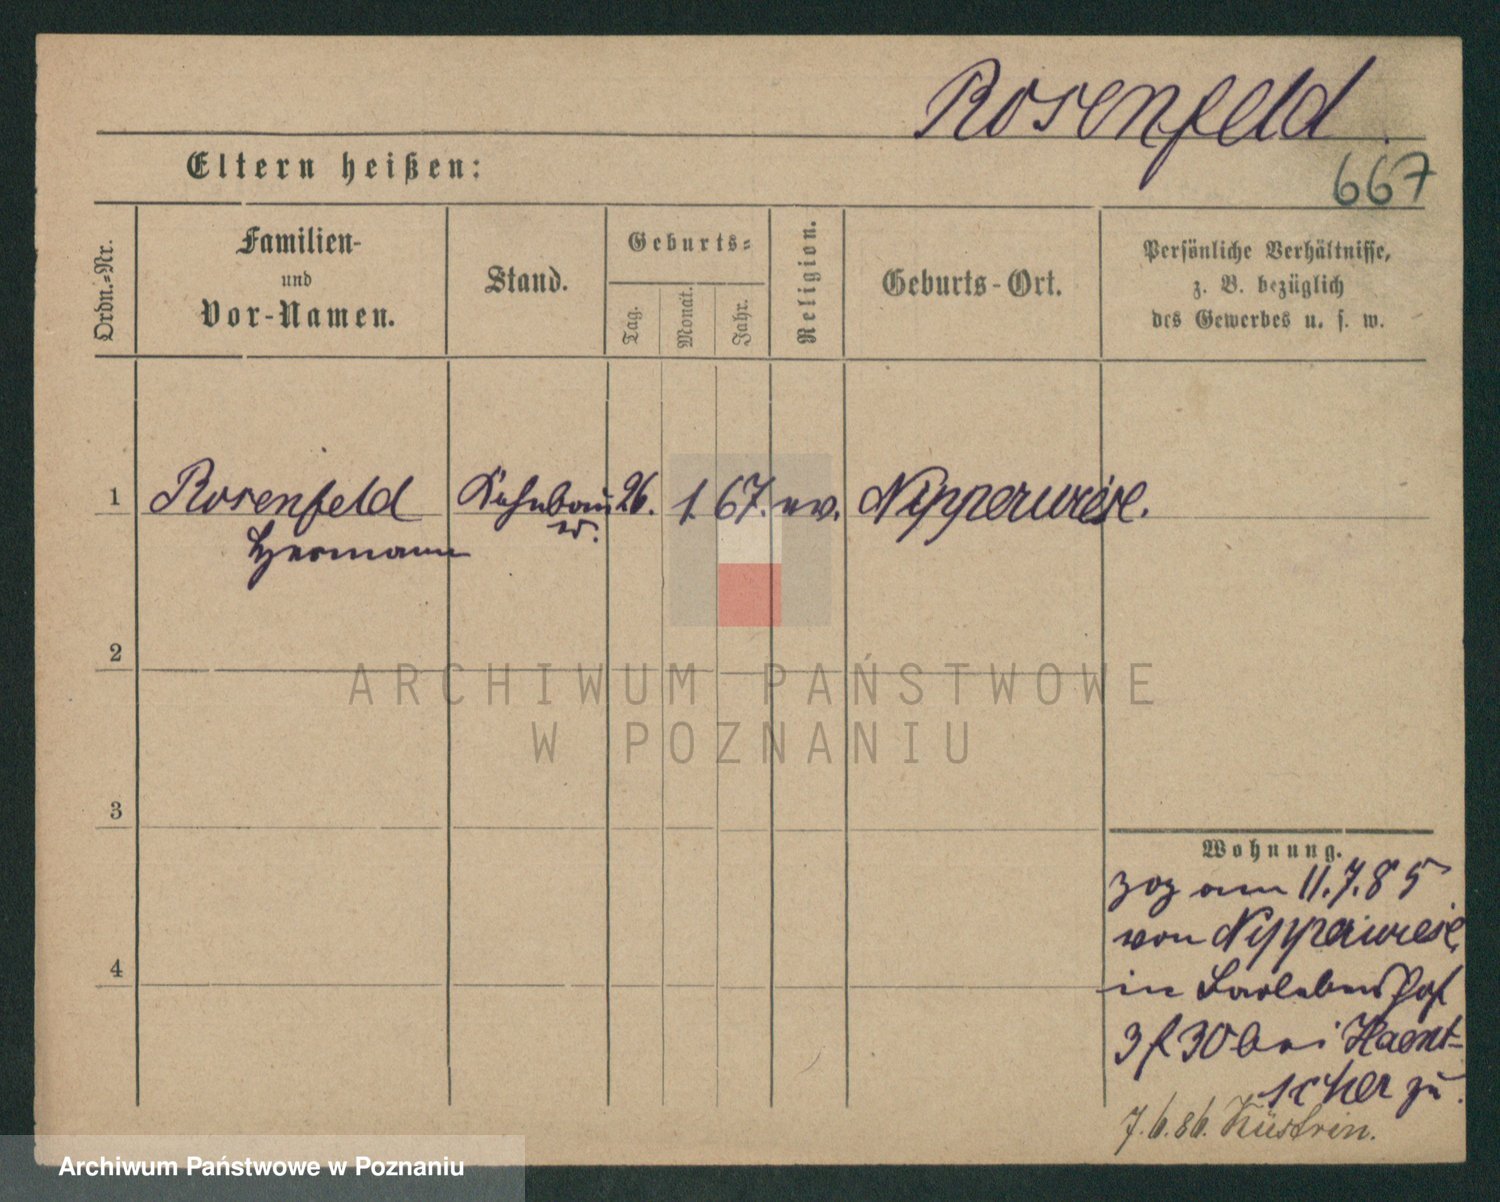 Rosenfeld
667
Eltern heißen:
Ordn.-Nr.
Familien-
und
Vor-Namen.
Stand.
Geburts-
Tag.
Monat.
Jahr.
Religion.
Geburts-Ort.
Persönliche Verhältnisse,
z. B. bezüglich
des Gewerbes u. s. w.
1 Rosenfeld 26. 1. 67. ev. Nipperwiese.
Hermann
2
3
4
Wohnung.
zog am 11.7.85
von Nipperwiese,
in
bei Haent-
scher zu.
7.6.86. Küstrin.
ARCHIWUM PAŃSTWOWE
W POZNANIU
Archiwum Państwowe w Poznaniu